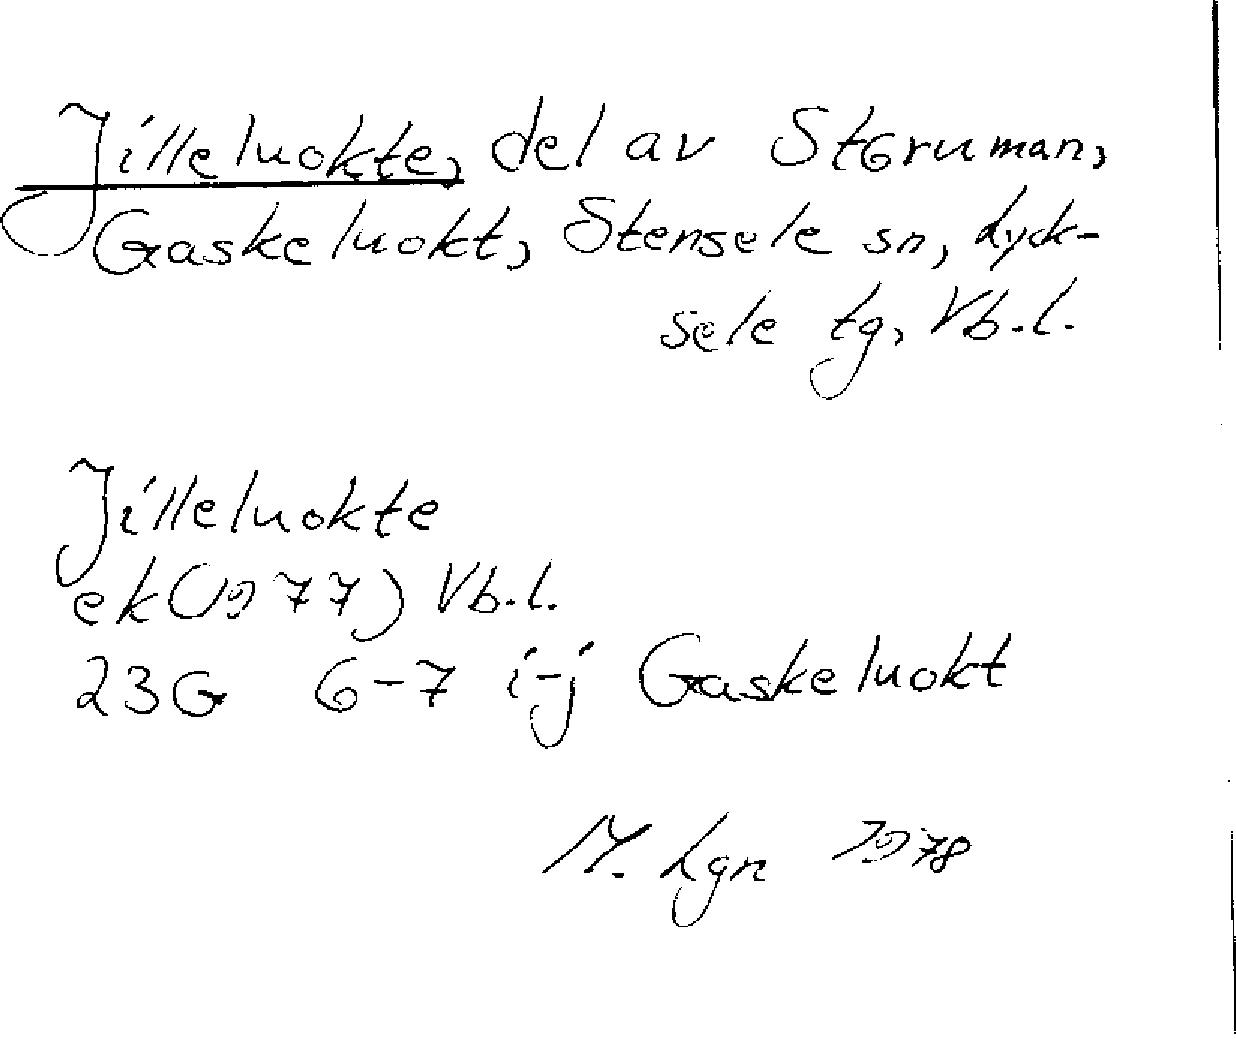 Jilleluokte, del av Storuman,
Gaskeluokt, Stensele sn, Lyck-
sele tg, Vb.l.
Jilleluokte
ek (1977) Vb.l.
23G 6-7 i-j Gaskeluokt
M. Lgn 1978